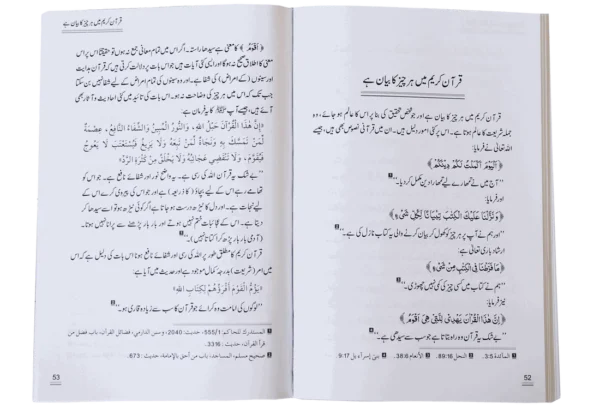 قرآن کریم میں ہر چیز کا بیان ہے
قرآن کریم میں ہر چیز کا بیان ہے اور جو شخص تحقیق کی بنا پر اس کا عالم ہو جائے، وہ
جملہ شریعت کا عالم ہوتا ہے۔ اس پر کئی امور دلیل ہیں۔ ان میں قرآنی نصوص بھی ہیں۔
اللہ تعالیٰ نے فرمایا:
﴿اَلْيَوْمَ اَكْمَلْتُ لَكُمْ دِيْنَكُمْ﴾
”آج میں نے تمھارے لیے تمھارا دین مکمل کر دیا۔“
اور فرمایا:
﴿وَنَزَّلْنَا عَلَيْكَ الْكِتٰبَ تِبْيَانًا لِّكُلِّ شَيْءٍ﴾
”اور ہم نے آپ پر ہر چیز کو کھول کر بیان کرنے والی یہ کتاب نازل کی ہے۔“
ارشاد باری تعالیٰ ہے:
﴿مَا فَرَّطْنَا فِي الْكِتٰبِ مِنْ شَيْءٍ﴾
”ہم نے کتاب میں کسی چیز کی کمی نہیں چھوڑی۔“
نیز فرمایا:
﴿اِنَّ هٰذَا الْقُرْاٰنَ يَهْدِيْ لِلَّتِيْ هِيَ اَقْوَمُ﴾
”بے شک یہ قرآن وہ راہ بتاتا ہے جو سب سے سیدھی ہے۔“
1 المآئدة 3:5. 2 النحل 89:16. 3 الأنعام 38:6. 4 بنيٓ إسرآءيل 9:17.
52
قرآن کریم میں ہر چیز کا بیان ہے
﴿اَقْوَمُ﴾ کا معنی ہے سیدھا راستہ۔ اگر اس میں تمام معانی جمع نہ ہوں تو حقیقتاً اس پر اس
معنی کا اطلاق صحیح نہ ہوگا اور ایسی کئی آیات ہیں جو اس پر دلالت کرتی ہیں کہ قرآن ہدایت
اور سینوں (کے امراض) کی شفا ہے۔ اور وہ سینوں کی تمام امراض کے لیے شفا نہیں بن سکتا
جب تک کہ اس میں ہر چیز کی وضاحت نہ ہو۔ اس بات کی تائید میں کئی احادیث و آثار بھی
آئے ہیں، جیسے آپ ﷺ کا یہ فرمان ہے:
«إِنَّ هٰذَا الْقُرْآنَ حَبْلُ اللّٰهِ، وَالنُّورُ الْمُبِينُ وَالشِّفَاءُ النَّافِعُ، عِصْمَةٌ
لِمَنْ تَمَسَّكَ بِهِ وَنَجَاةٌ لِمَنْ تَبِعَهُ وَلَا يَزِيغُ فَيُسْتَعْتَبَ لَا يَعْوَجُّ
فَيُقَوَّمَ، وَلَا تَنْقَضِي عَجَائِبُهُ وَلَا يَخْلُقُ مِنْ كَثْرَةِ الرَّدِّ»
”بے شک یہ قرآن اللہ کی رسی ہے۔ یہ واضح نور اور شفائے نافع ہے۔ جو اس کو
تھامے رہے اس کے لیے بچاؤ (کا ذریعہ) ہے اور جو اس کی پیروی کرے اس کے
لیے نجات ہے۔
دیتا ہے۔ اس کے عجائبات ختم نہیں ہوتے اور بار بار پڑھنے سے پرانا نہیں ہوتا۔
(آدمی بار بار پڑھ کر اکتاتا نہیں)۔“
قرآن کریم کا مطلق طور پر اللہ کی رسی اور شفائے نافع ہونا اس بات کی دلیل ہے کہ اس
میں امر (شریعت) بدرجہ کمال موجود ہے اور حدیث میں آیا ہے:
«يَؤُمُّ الْقَوْمَ أَقْرَؤُهُمْ لِكِتَابِ اللّٰهِ»
”لوگوں کی امامت وہ کرائے جو قرآن کا سب سے زیادہ قاری ہو۔“
1 المستدرك للحاكم: 555/1، حديث: 2040، وسنن الدارمي، فضائل القرآن، باب فضل من
قرأ القرآن، حديث: 3316. 2 صحيح مسلم، المساجد، باب من أحق بالإمامة، حديث: 673.
53